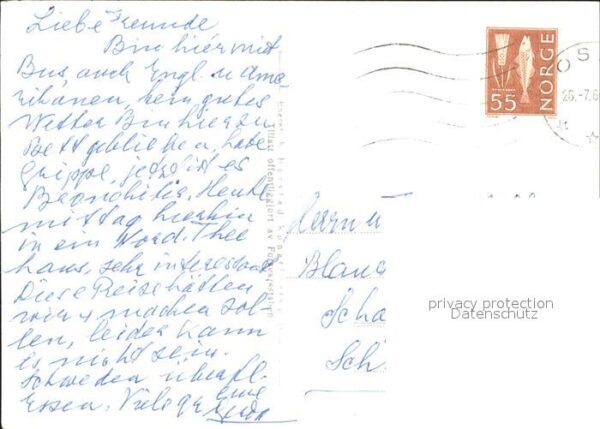 Liebe Freunde
Bin hier mit
Bus, auch Engl. u Ame
rikanen, kein gutes
Wetter Bin hier zu
Bett geblieben, habe
Grippe, jetzt ist es
Bronchitis. Heute
mittag hierhin
in ein
haus, sehr interessant
Diese Reise hätten
wir machen sol-
len, leider kann
es nicht sein.
Schweden überall
Essen. Viele
NORGE
55
OS
26.-7.6
Herrn u
Blanc
Scha
Sch
privacy protection
Datenschutz